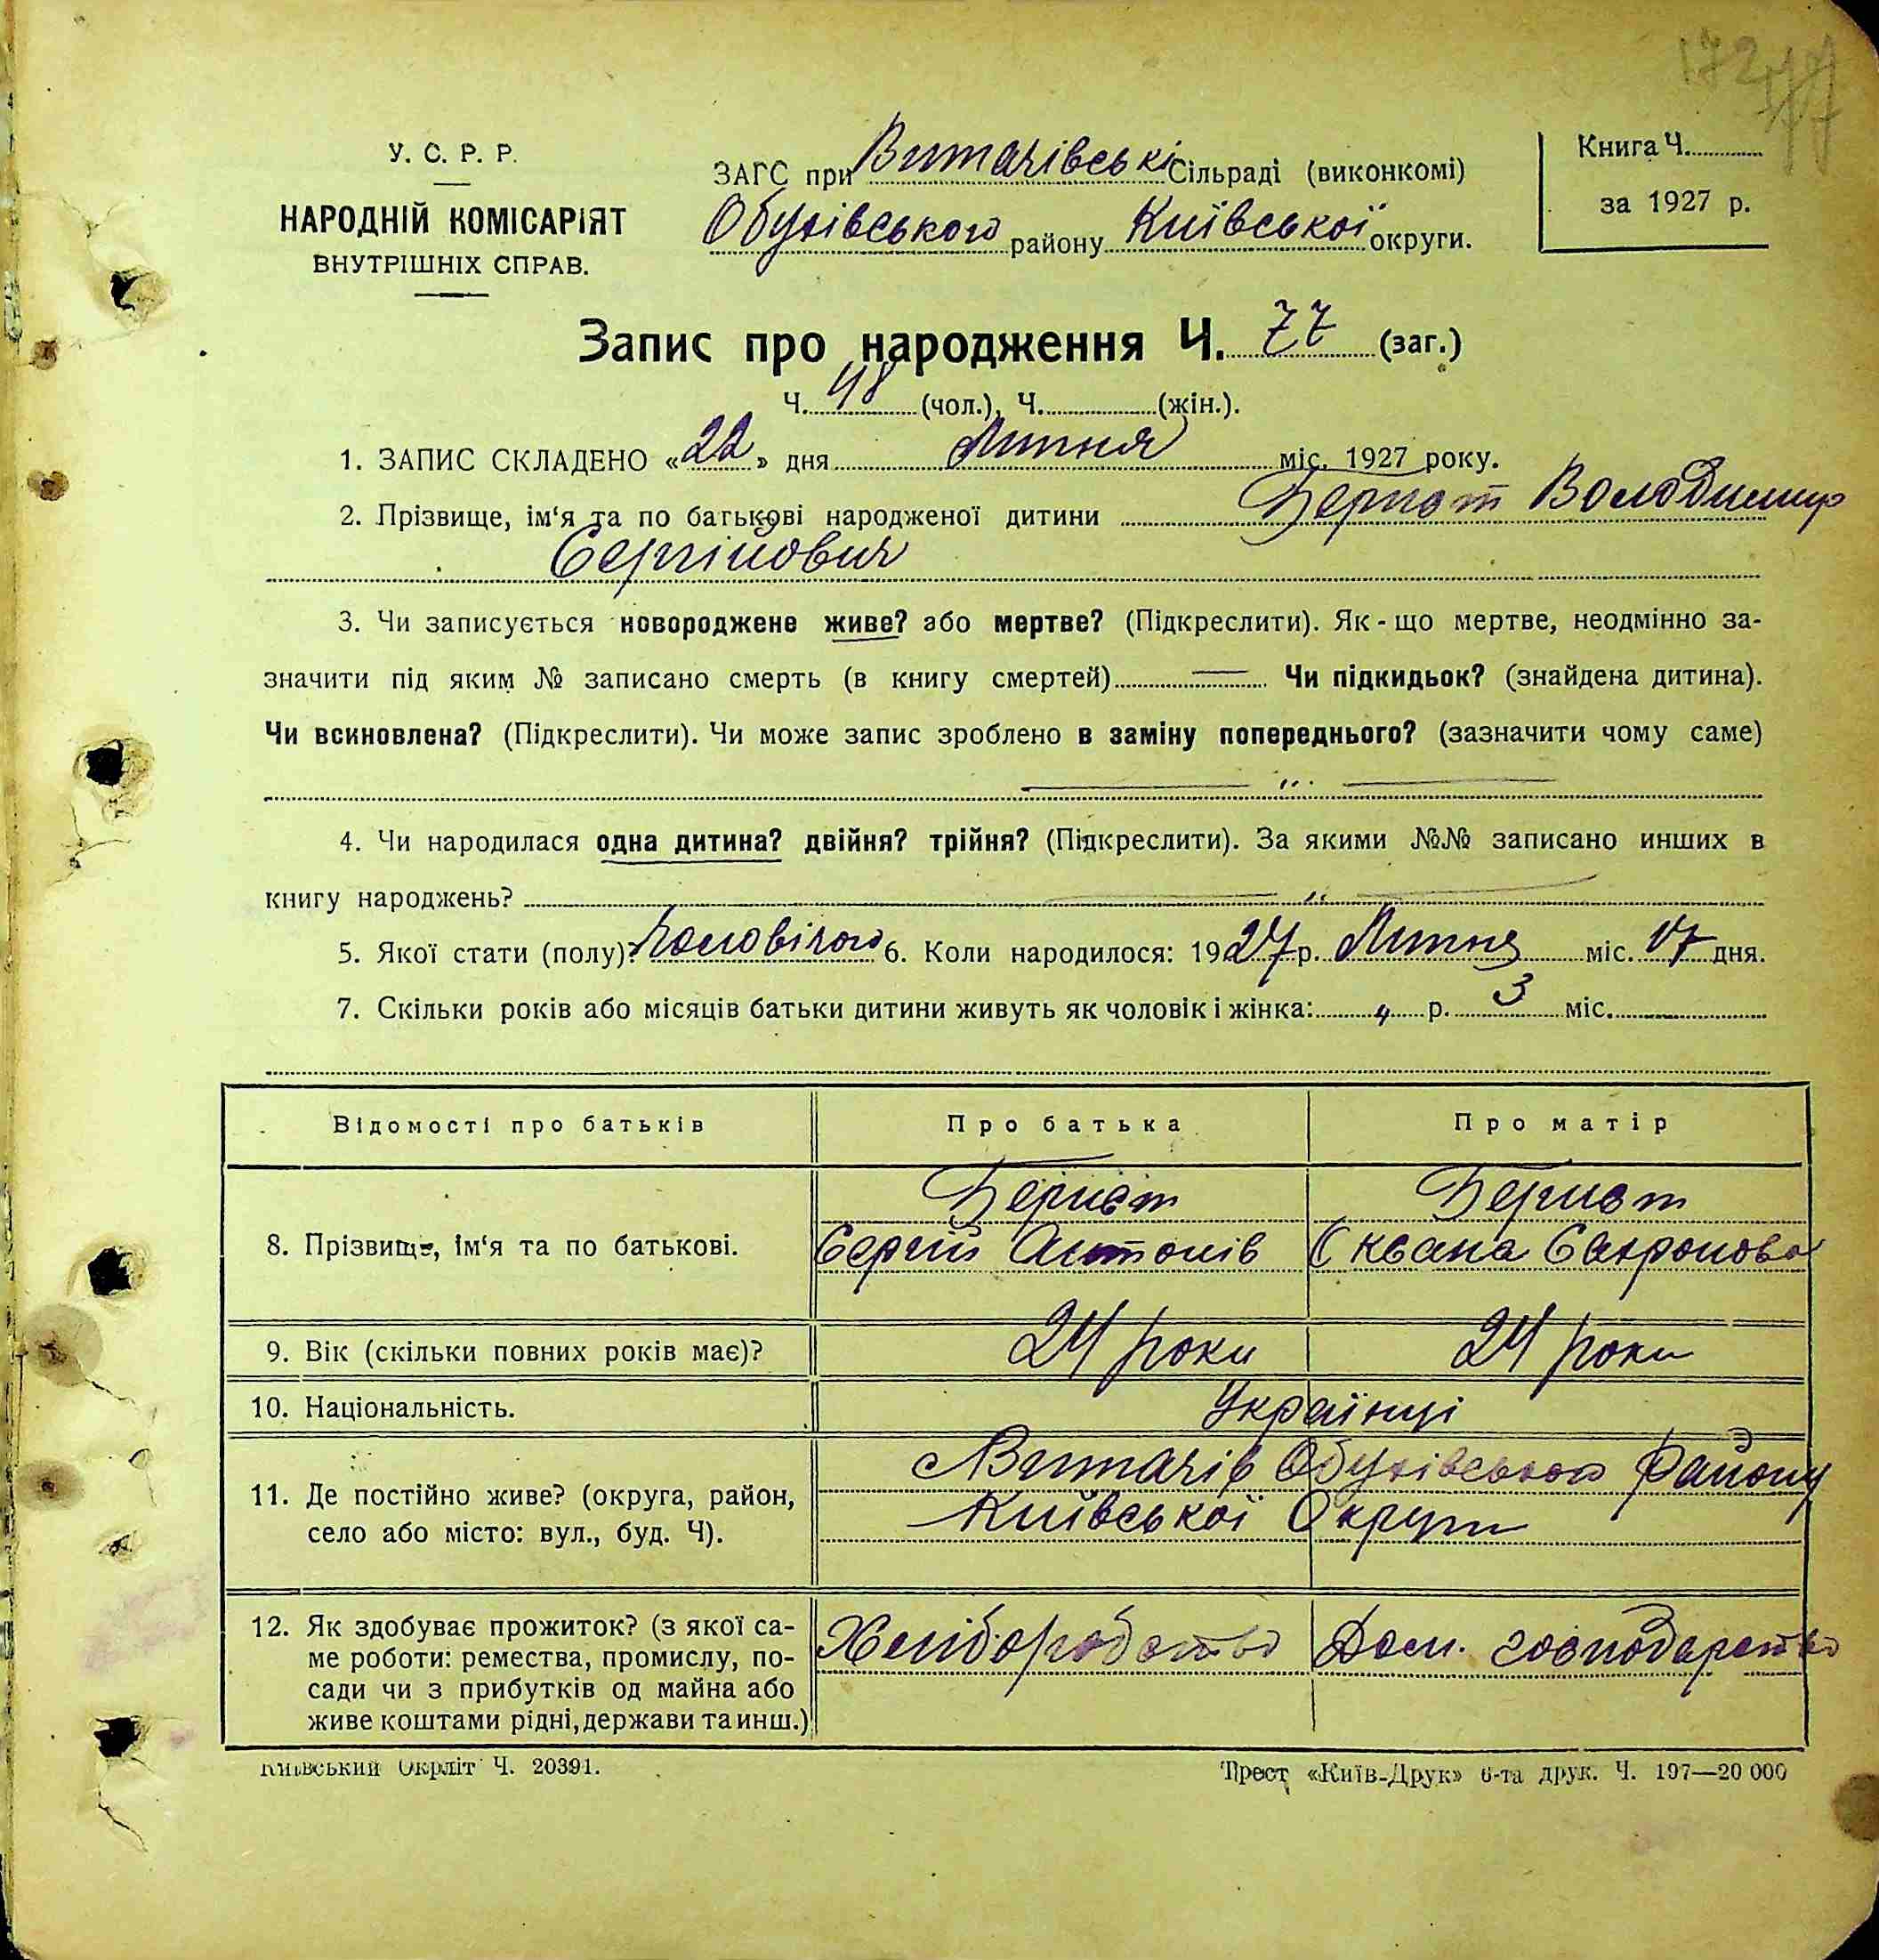 172 77
У. С. Р. Р.
НАРОДНІЙ КОМІСАРІЯТ
ВНУТРІШНІХ СПРАВ.
ЗАГС при Витачівські Сільраді (виконкомі)
Обухівського району Київської округи.
Книга Ч.
за 1927 р.
Запис про народження Ч. 77 (заг.)
Ч. 48 (чол.), Ч. (жін.).
1. ЗАПИС СКЛАДЕНО «22» дня Липня міс. 1927 року.
2. Прізвище, ім‘я та по батькові народженої дитини Володимир
Сергійович
3. Чи записується новороджене живе? або мертве? (Підкреслити). Як-що мертве, неодмінно за-
значити під яким № записано смерть (в книгу смертей) — Чи підкидьок? (знайдена дитина).
Чи всиновлена? (Підкреслити). Чи може запис зроблено в заміну попереднього? (зазначити чому саме)
— „ —
4. Чи народилася одна дитина? двійня? трійня? (Підкреслити). За якими №№ записано инших в
книгу народжень? — „ —
5. Якої стати (полу)? Чоловічого 6. Коли народилося: 1927 р. Липня міс. 17 дня.
7. Скільки років або місяців батьки дитини живуть як чоловік і жінка: 4 р. 3 міс.
Відомості про батьків Про батька Про матір
8. Прізвище, ім‘я та по батькові.
Сергій Антонів Оксана
9. Вік (скільки повних років має)? 24 роки 24 роки
10. Національність. Українці
11. Де постійно живе? (округа, район,
село або місто: вул., буд. Ч).
с Витачів Обухівського Району
Київської Округи
12. Як здобуває прожиток? (з якої са-
ме роботи: ремества, промислу, по-
сади чи з прибутків од майна або
живе коштами рідні, держави та инш.)
Хліборобство Дом. господарство
Київський Окрліт Ч. 20391.
Трест «Київ-Друк» 6-та друк. Ч. 197—20 000